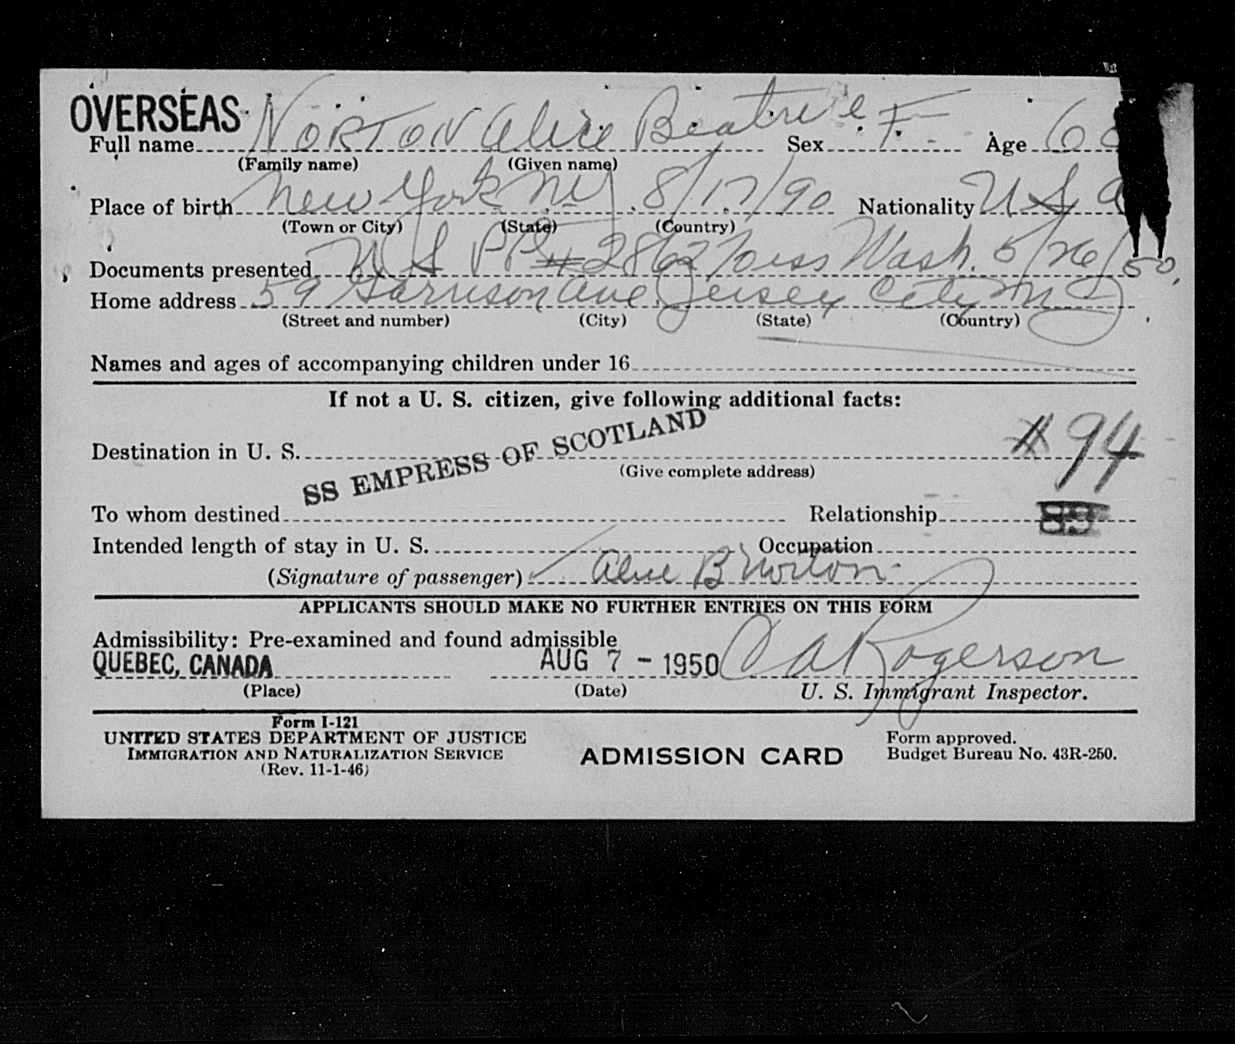 OVERSEAS
Full name NORTON Alice Beatrice Sex F Age 60
(Family name) (Given name)
Place of birth New York NY 8/17/90 Nationality USA
(Town or City) (State) (Country)
Documents presented US PP # iss Wash. 5/26/50
Home address 59 Garrison Ave Jersey City NJ
(Street and number) (City) (State) (Country)
Names and ages of accompanying children under 16
If not a U. S. citizen, give following additional facts:
Destination in U. S.
(Give complete address)
# 94
SS EMPRESS OF SCOTLAND
To whom destined Relationship
Intended length of stay in U. S. Occupation
(Signature of passenger) Alice B Norton
APPLICANTS SHOULD MAKE NO FURTHER ENTRIES ON THIS FORM
Admissibility: Pre-examined and found admissible
QUEBEC, CANADA AUG 7 - 1950 Rogerson
(Place) (Date) U. S. Immigrant Inspector.
Form I-121
UNITED STATES DEPARTMENT OF JUSTICE
IMMIGRATION AND NATURALIZATION SERVICE
(Rev. 11-1-46)
ADMISSION CARD
Form approved.
Budget Bureau No. 43R-250.